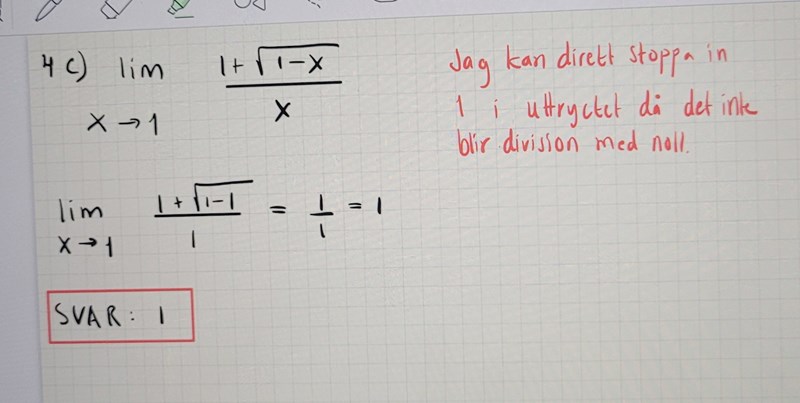 4 c) lim 1+√1-x / x
x→1
Jag kan direkt stoppa in
1 i uttrycket då det inte
blir division med noll.
lim 1+√1-1 / 1 = 1/1 = 1
x→1
SVAR: 1